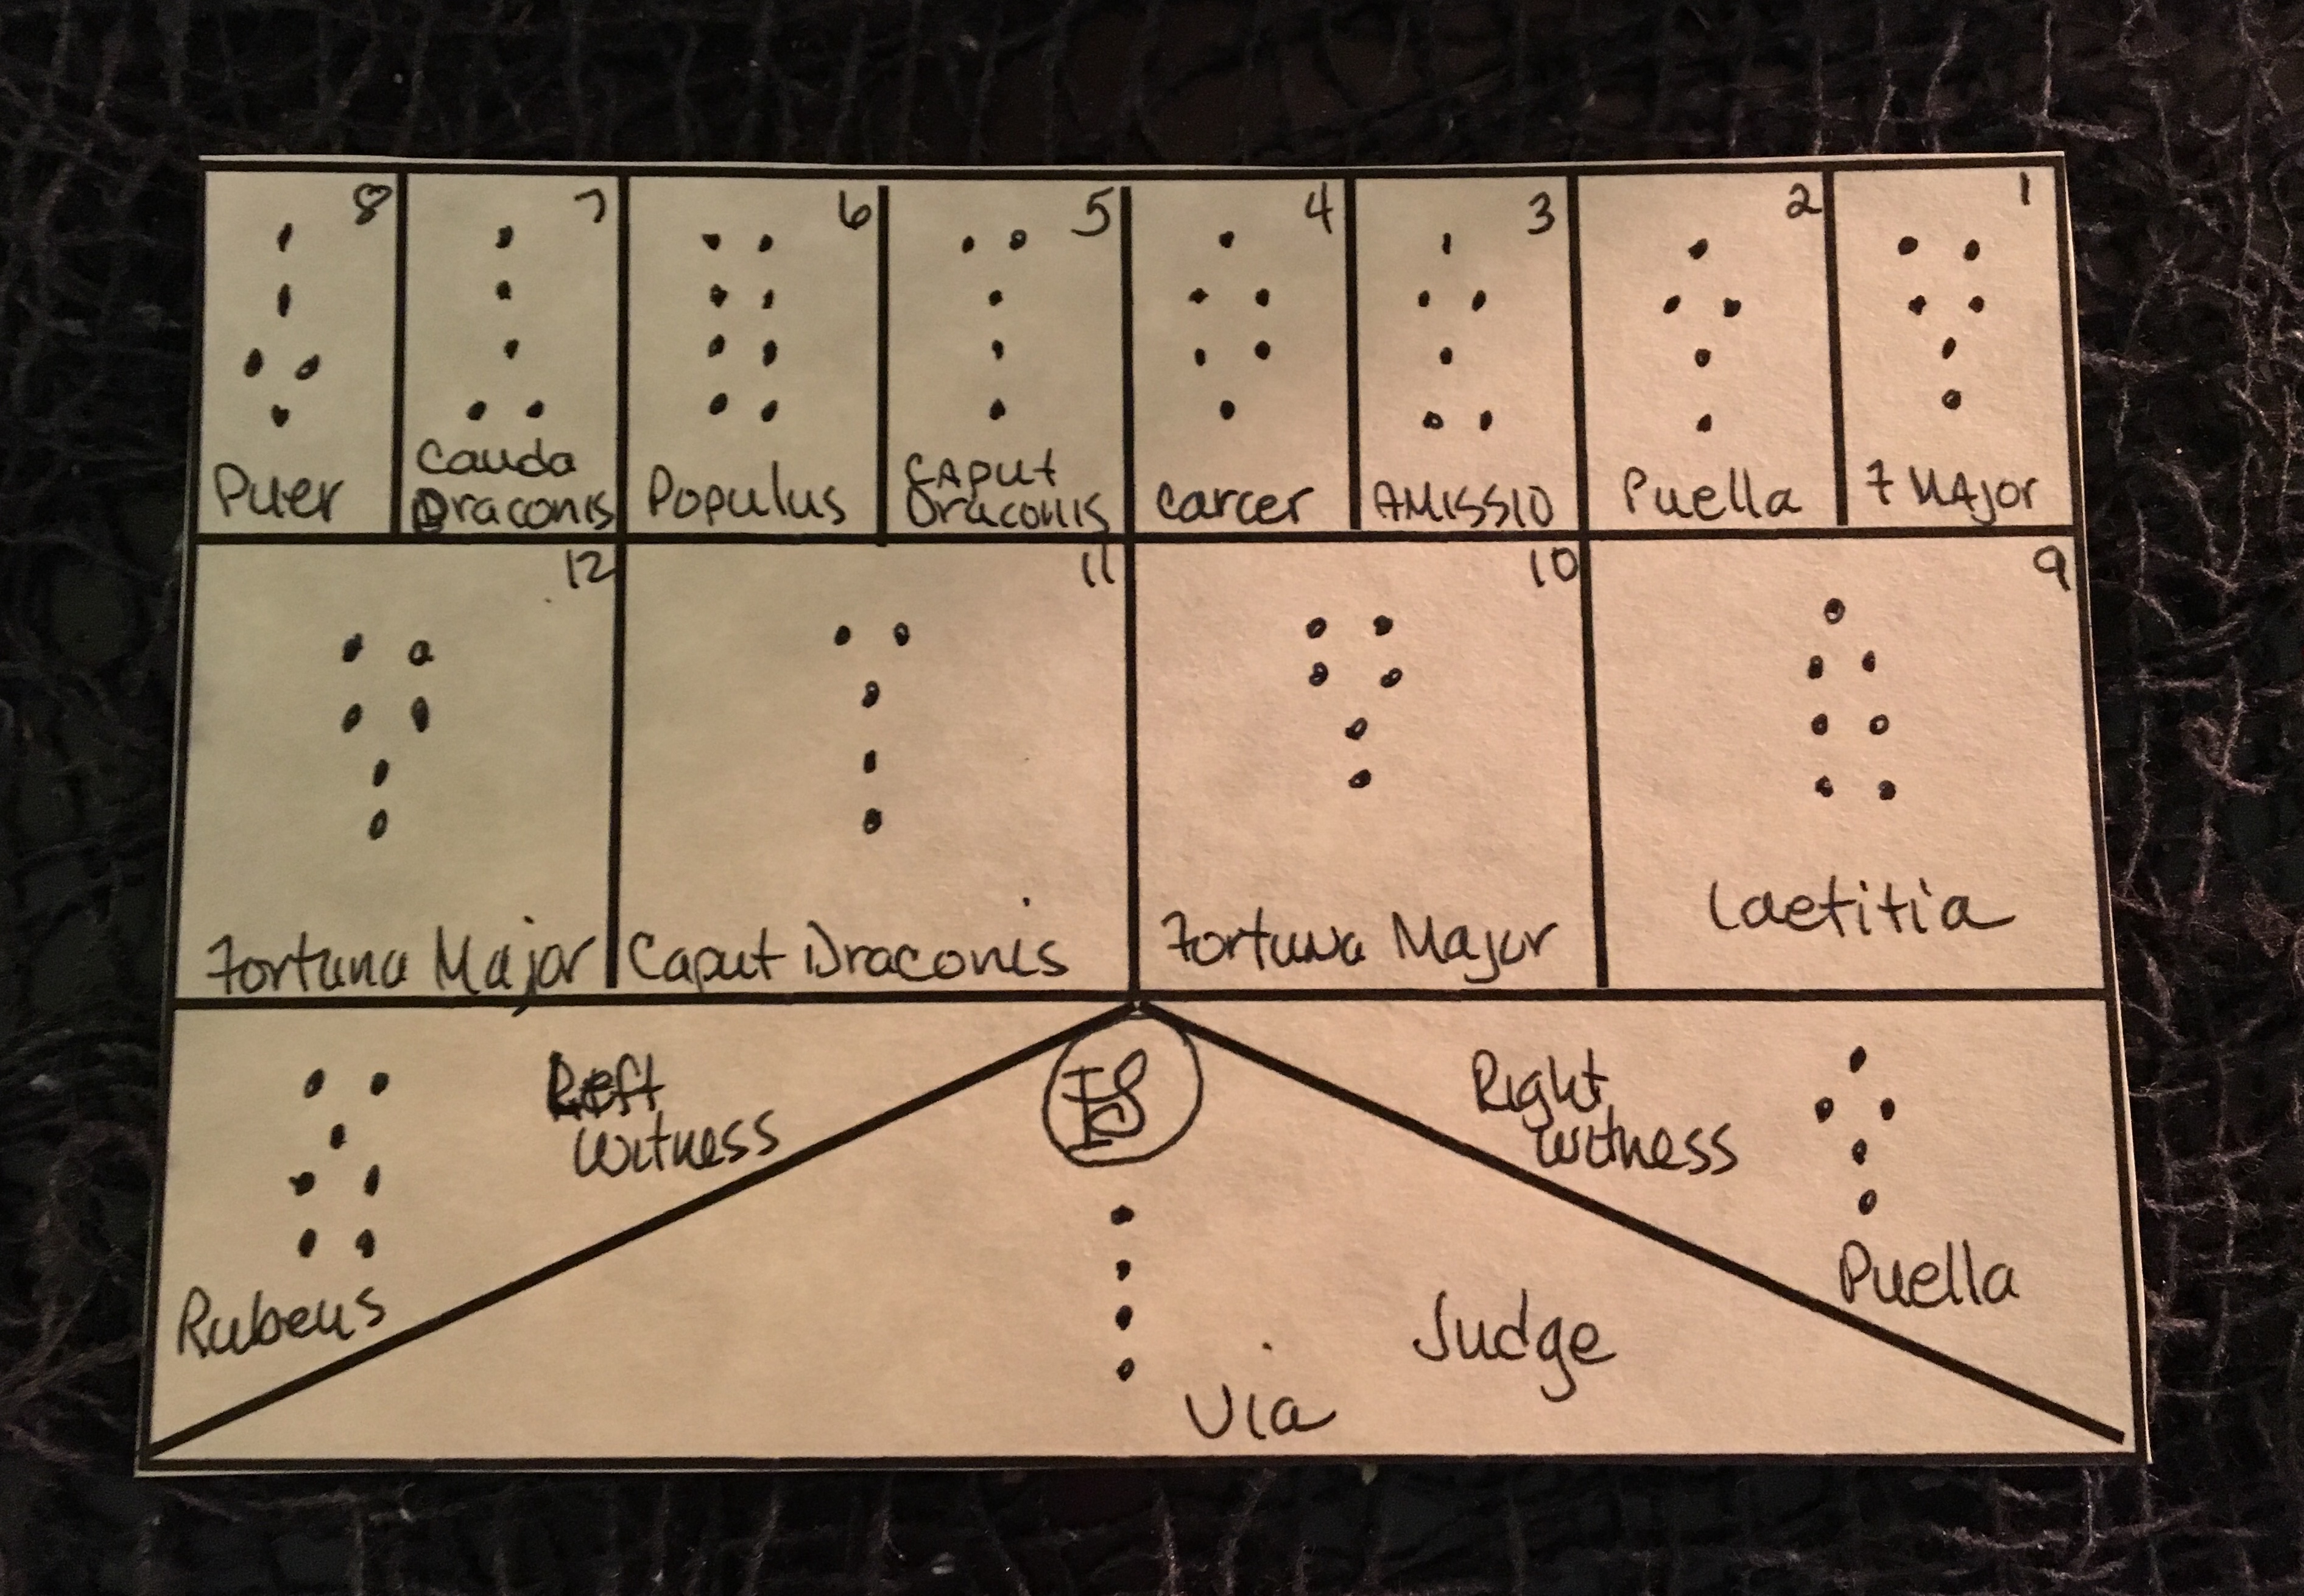 8
7
6
5
4
3
2
1
Puer
Cauda
Draconis
Populus
CAput
Draconis
Carcer
AMISSIO
Puella
F MAjor
12
11
10
9
Fortuna Major
Caput Draconis
Fortuna Major
Laetitia
Left
Witness
Right
Witness
Rubeus
Puella
Judge
Via